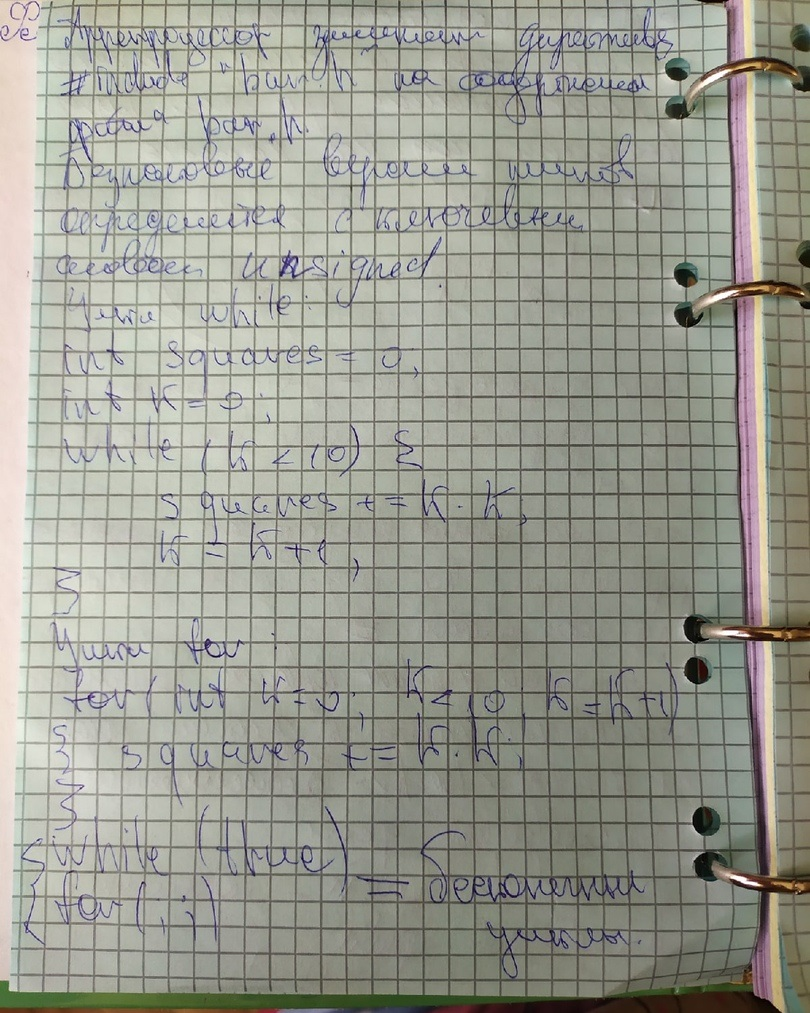 Препроцессор заменяет директиву
#include "bar.h" на содержимое
файла bar.h.
Беззнаковые версии типов
определяется с ключевым
словом unsigned.
Цикл while:
int squares = 0;
int k = 0;
while (k < 10) {
squares += k · k;
k = k+1;
}
Цикл for:
for (int k=0; k<10, k=k+1)
{ squares += k · k;
}
while (true)
for (;;)
= бесконечные
циклы.